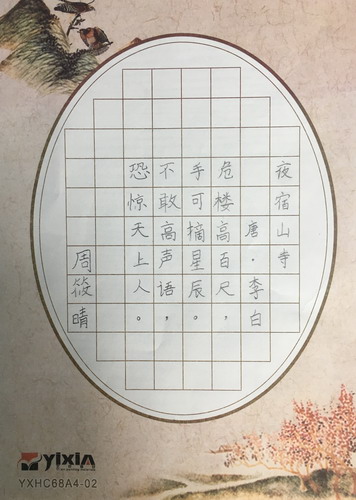 夜宿山寺
唐·李白
危楼高百尺，
手可摘星辰。
不敢高声语，
恐惊天上人。
周筱晴
YIXIN
YXHC68A4-02